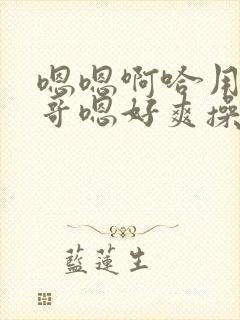 嗯嗯啊哈用
哥嗯好爽操
藍蓮生